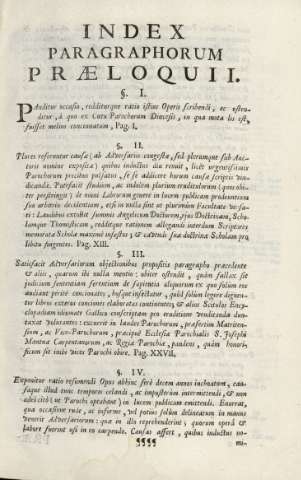 INDEX
PARAGRAPHORUM
PRÆLOQUII.
§. I.
PAnditur occasio, redditurque ratio istius Operis scribendi, ac osten-
ditur, à quo ex Cœtu Parochorum Diœcesis, in qua mota lis est,
fuisset melius concinnatum, Pag. I.
§. II.
Plures reseruntur causæ (ab Adversario congestæ, sed plerumque sub Auc-
toris nomine expositæ) quibus inductus diu renuit, licet urgentissimis
Parochorum precibus pulsatus, se se addicere horum causæ scriptis vin-
dicandæ. Patefacit studium, ac indolem plurium eruditulorum (quos obi-
ter perstringit) de nimis Laborum genere in lucem publicam prodeuntium
seu arbitris decidentium, etsi in nulla sint ac plurimùm Facultate versa-
ti: Laudibus extulit summis Angelicum Doctorem, ejus Doctrinam, Scho-
lamque Thomisticam, redditque rationem allegandi interdum Scriptores
memoratæ Scholæ maximè infestos; & extraneis suæ doctrinæ Scholam pro
libito fingentes. Pag. XIII.
§. III.
Satisfacit Adversariorum objectionibus propositis paragrapho præcedente
& aliis, quarum ibi nulla mentio: obiter ostendit, quàm fallax sit
judicium sententiam ferentium de sapientia aliquorum ex quo solùm eos
audiant peritè concionantes, hosque insectatur, quòd solùm legere dignen-
tur libros exteras conciones elaboratas continentes, & alios Scriolos Ency-
clopædiam idiomate Gallico conscriptam pro eruditione venditanda dun-
taxat volutantes: excurrit in laudes Parochorum, præsertim Matriten-
sium, ac Vice-Parochorum, præcipuè Ecclesiæ Parochialis S. Josephi
Mantuæ Carpentanorum, ac Regiæ Parochiæ, paulens, quàm honori-
ficum sit initio vices Parochi obire. Pag. XXVII.
§. IV.
Exponitur ratio resumendi Opus abhinc ferè decem annos inchoatum, cau-
sæque illud tunc temporis celandi, ac impostorùm intermittendi, & non
adeò citò (ut Parochi optabant) in lucem publicam emittendi. Enarrat,
qua occasione rude, ac informe, vel potiùs solùm delineatum in manus
venerit Adversariorum: quæ in illo reprehenderint; quorum operâ &
labore fuerint usi in eo carpendo. Causas affert, quibus inductus no-
¶¶¶¶ mi-